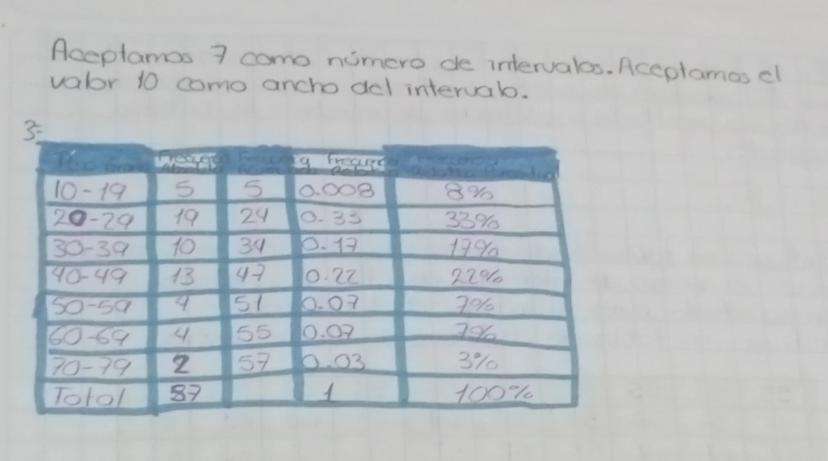 Aceptamos 7 como número de intervalos. Aceptamos el
valor 10 como ancho del intervalo.
3-
10-19 5 5 0.008 8%
20-29 19 24 0.33 33%
30-39 10 34 0.17 17%
40-49 13 47 0.22 22%
50-59 4 51 0.07 7%
60-69 4 55 0.07 7%
70-79 2 57 0.03 3%
Total 57 1 100%